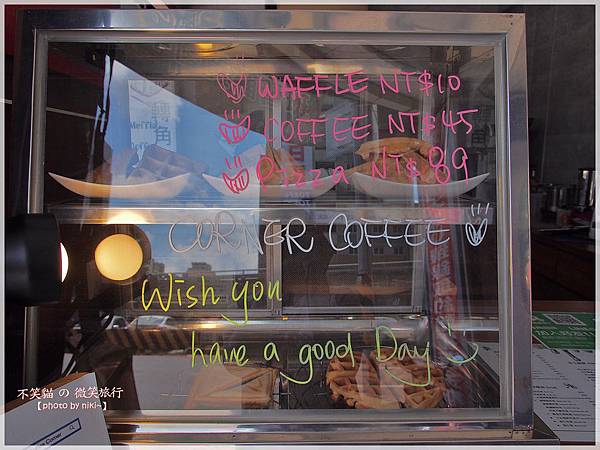 WAFFLE NT$10
COFFEE NT$45
Pizza NT$89
CORNER COFFEE
Wish you
have a good Day
轉角
不笑貓 の 微笑旅行
【photo by niki~】
Corner